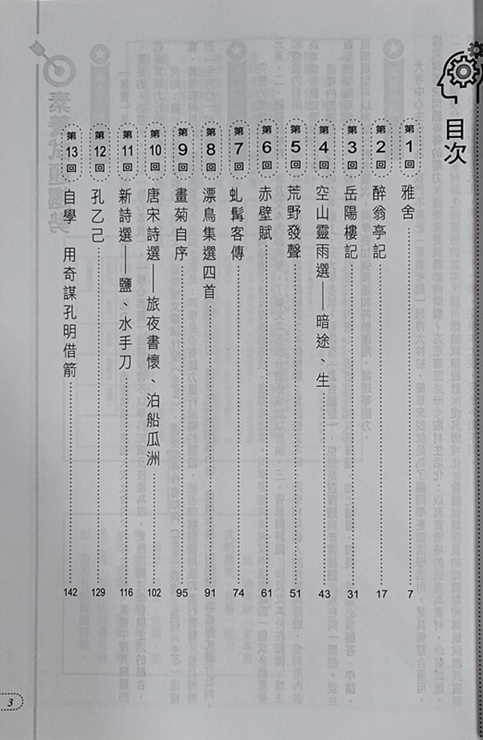 目次
第1回 雅舍 7
第2回 醉翁亭記 17
第3回 岳陽樓記 31
第4回 空山靈雨選——暗途、生 43
第5回 荒野發聲 51
第6回 赤壁賦 61
第7回 虬髯客傳 74
第8回 漂鳥集選四首 91
第9回 畫菊自序 95
第10回 唐宋詩選——旅夜書懷、泊船瓜洲 102
第11回 新詩選——鹽、水手刀 116
第12回 孔乙己 129
第13回 自學 用奇謀孔明借箭 142
3